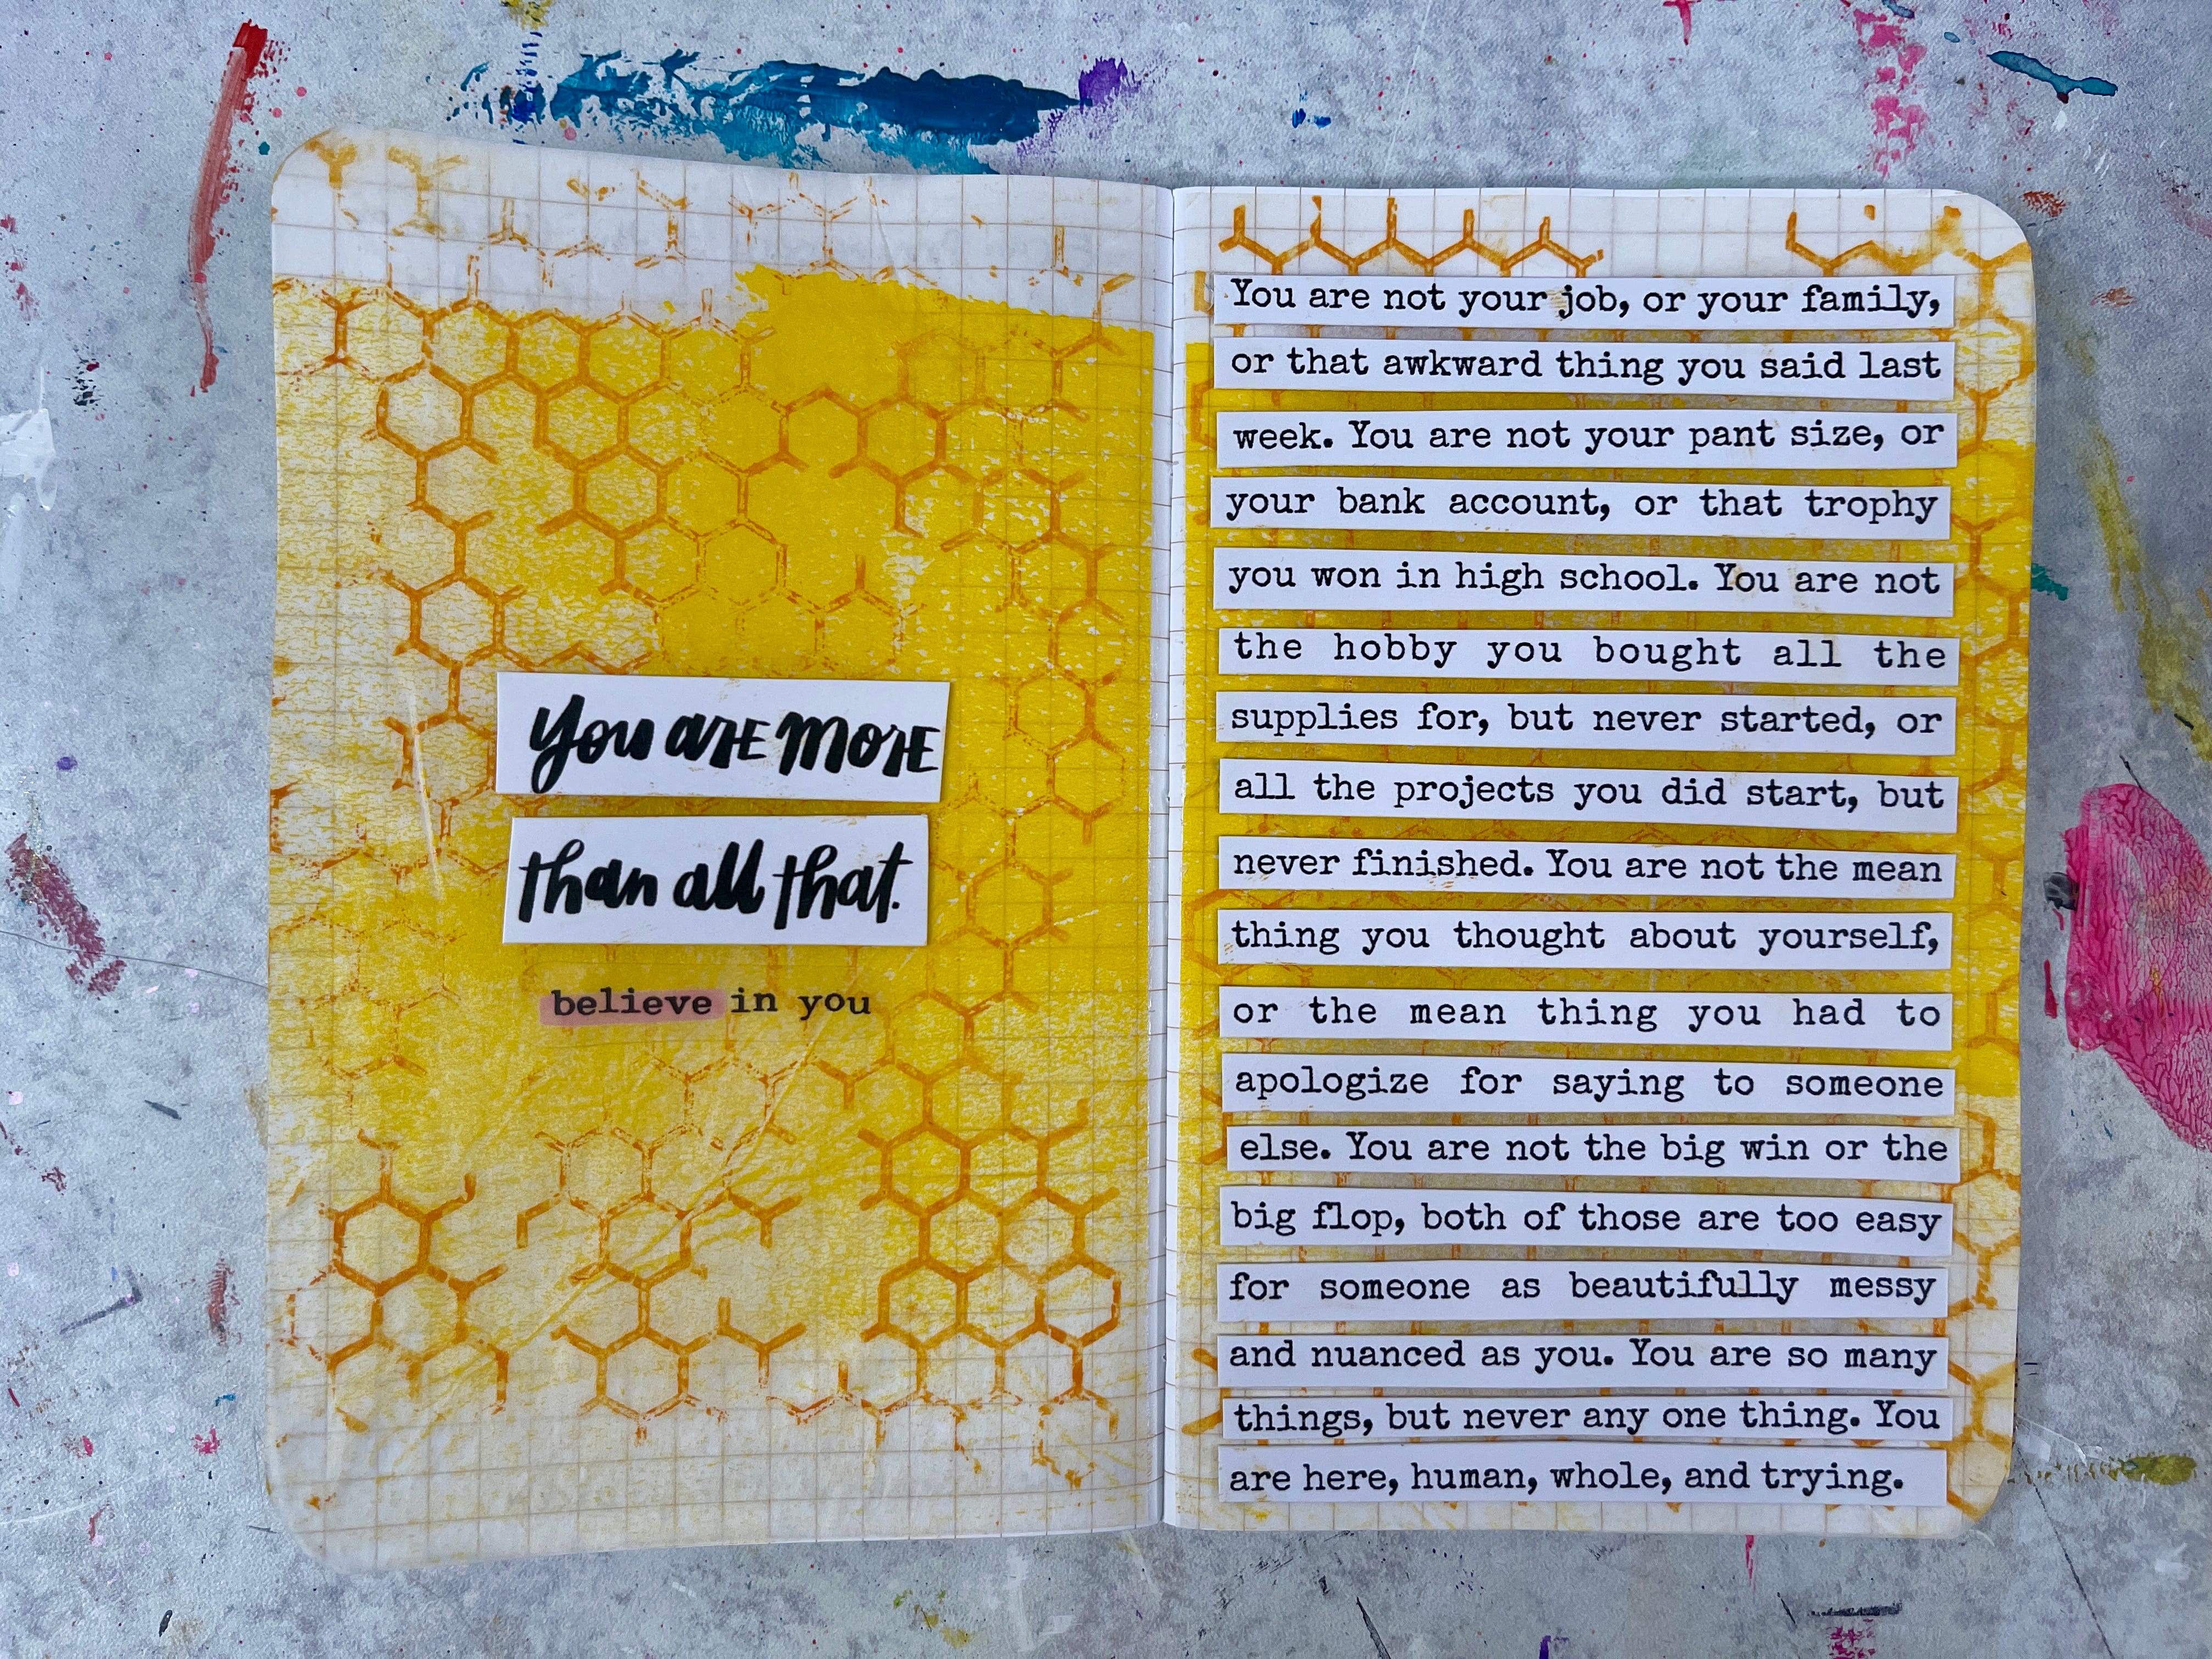 you are more
than all that.
believe in you
You are not your job, or your family,
or that awkward thing you said last
week. You are not your pant size, or
your bank account, or that trophy
you won in high school. You are not
the hobby you bought all the
supplies for, but never started, or
all the projects you did start, but
never finished. You are not the mean
thing you thought about yourself,
or the mean thing you had to
apologize for saying to someone
else. You are not the big win or the
big flop, both of those are too easy
for someone as beautifully messy
and nuanced as you. You are so many
things, but never any one thing. You
are here, human, whole, and trying.